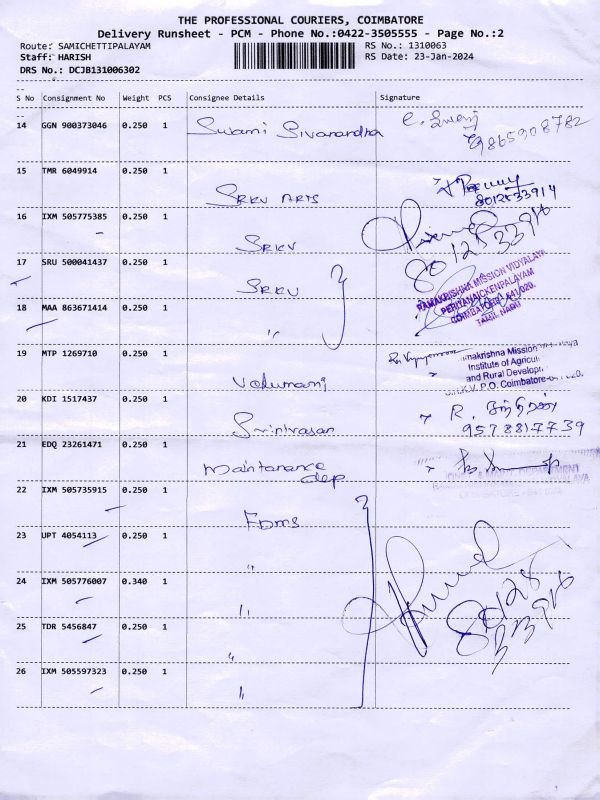 THE PROFESSIONAL COURIERS, COIMBATORE
Delivery Runsheet - PCM - Phone No.:0422-3505555 - Page No.:2
Route: SAMICHETTIPALAYAM RS No.: 1310063
Staff: HARISH RS Date: 23-Jan-2024
DRS No.: DCJB131006302
S No Consignment No Weight PCS Consignee Details Signature
14 GGN 900373046 0.250 1 Swami Sivanandha
9865908782
15 TMR 6049914 0.250 1 SRKV ARTS
8012533914
16 IXM 505775385 0.250 1 SRKV
17 SRU 500041437 0.250 1 SRKV
RAMAKRISHNA MISSION VIDYALAYA
PERIYANAICKENPALAYAM
COIMBATORE - 641 020.
TAMIL NADU
18 MAA 863671414 0.250 1 "
19 MTP 1269710 0.250 1 Velumani
makrishna Mission
Institute of Agricul
and Rural Developm
P.O. Coimbatore
20 KDI 1517437 0.250 1 Srinivasan
R.
9578817739
21 EDQ 23261471 0.250 1 Maintanance
dep
22 IXM 505735915 0.250 1 FDMS
23 UPT 4054113 0.250 1 "
24 IXM 505776007 0.340 1 "
25 TDR 5456847 0.250 1 "
26 IXM 505597323 0.250 1 "